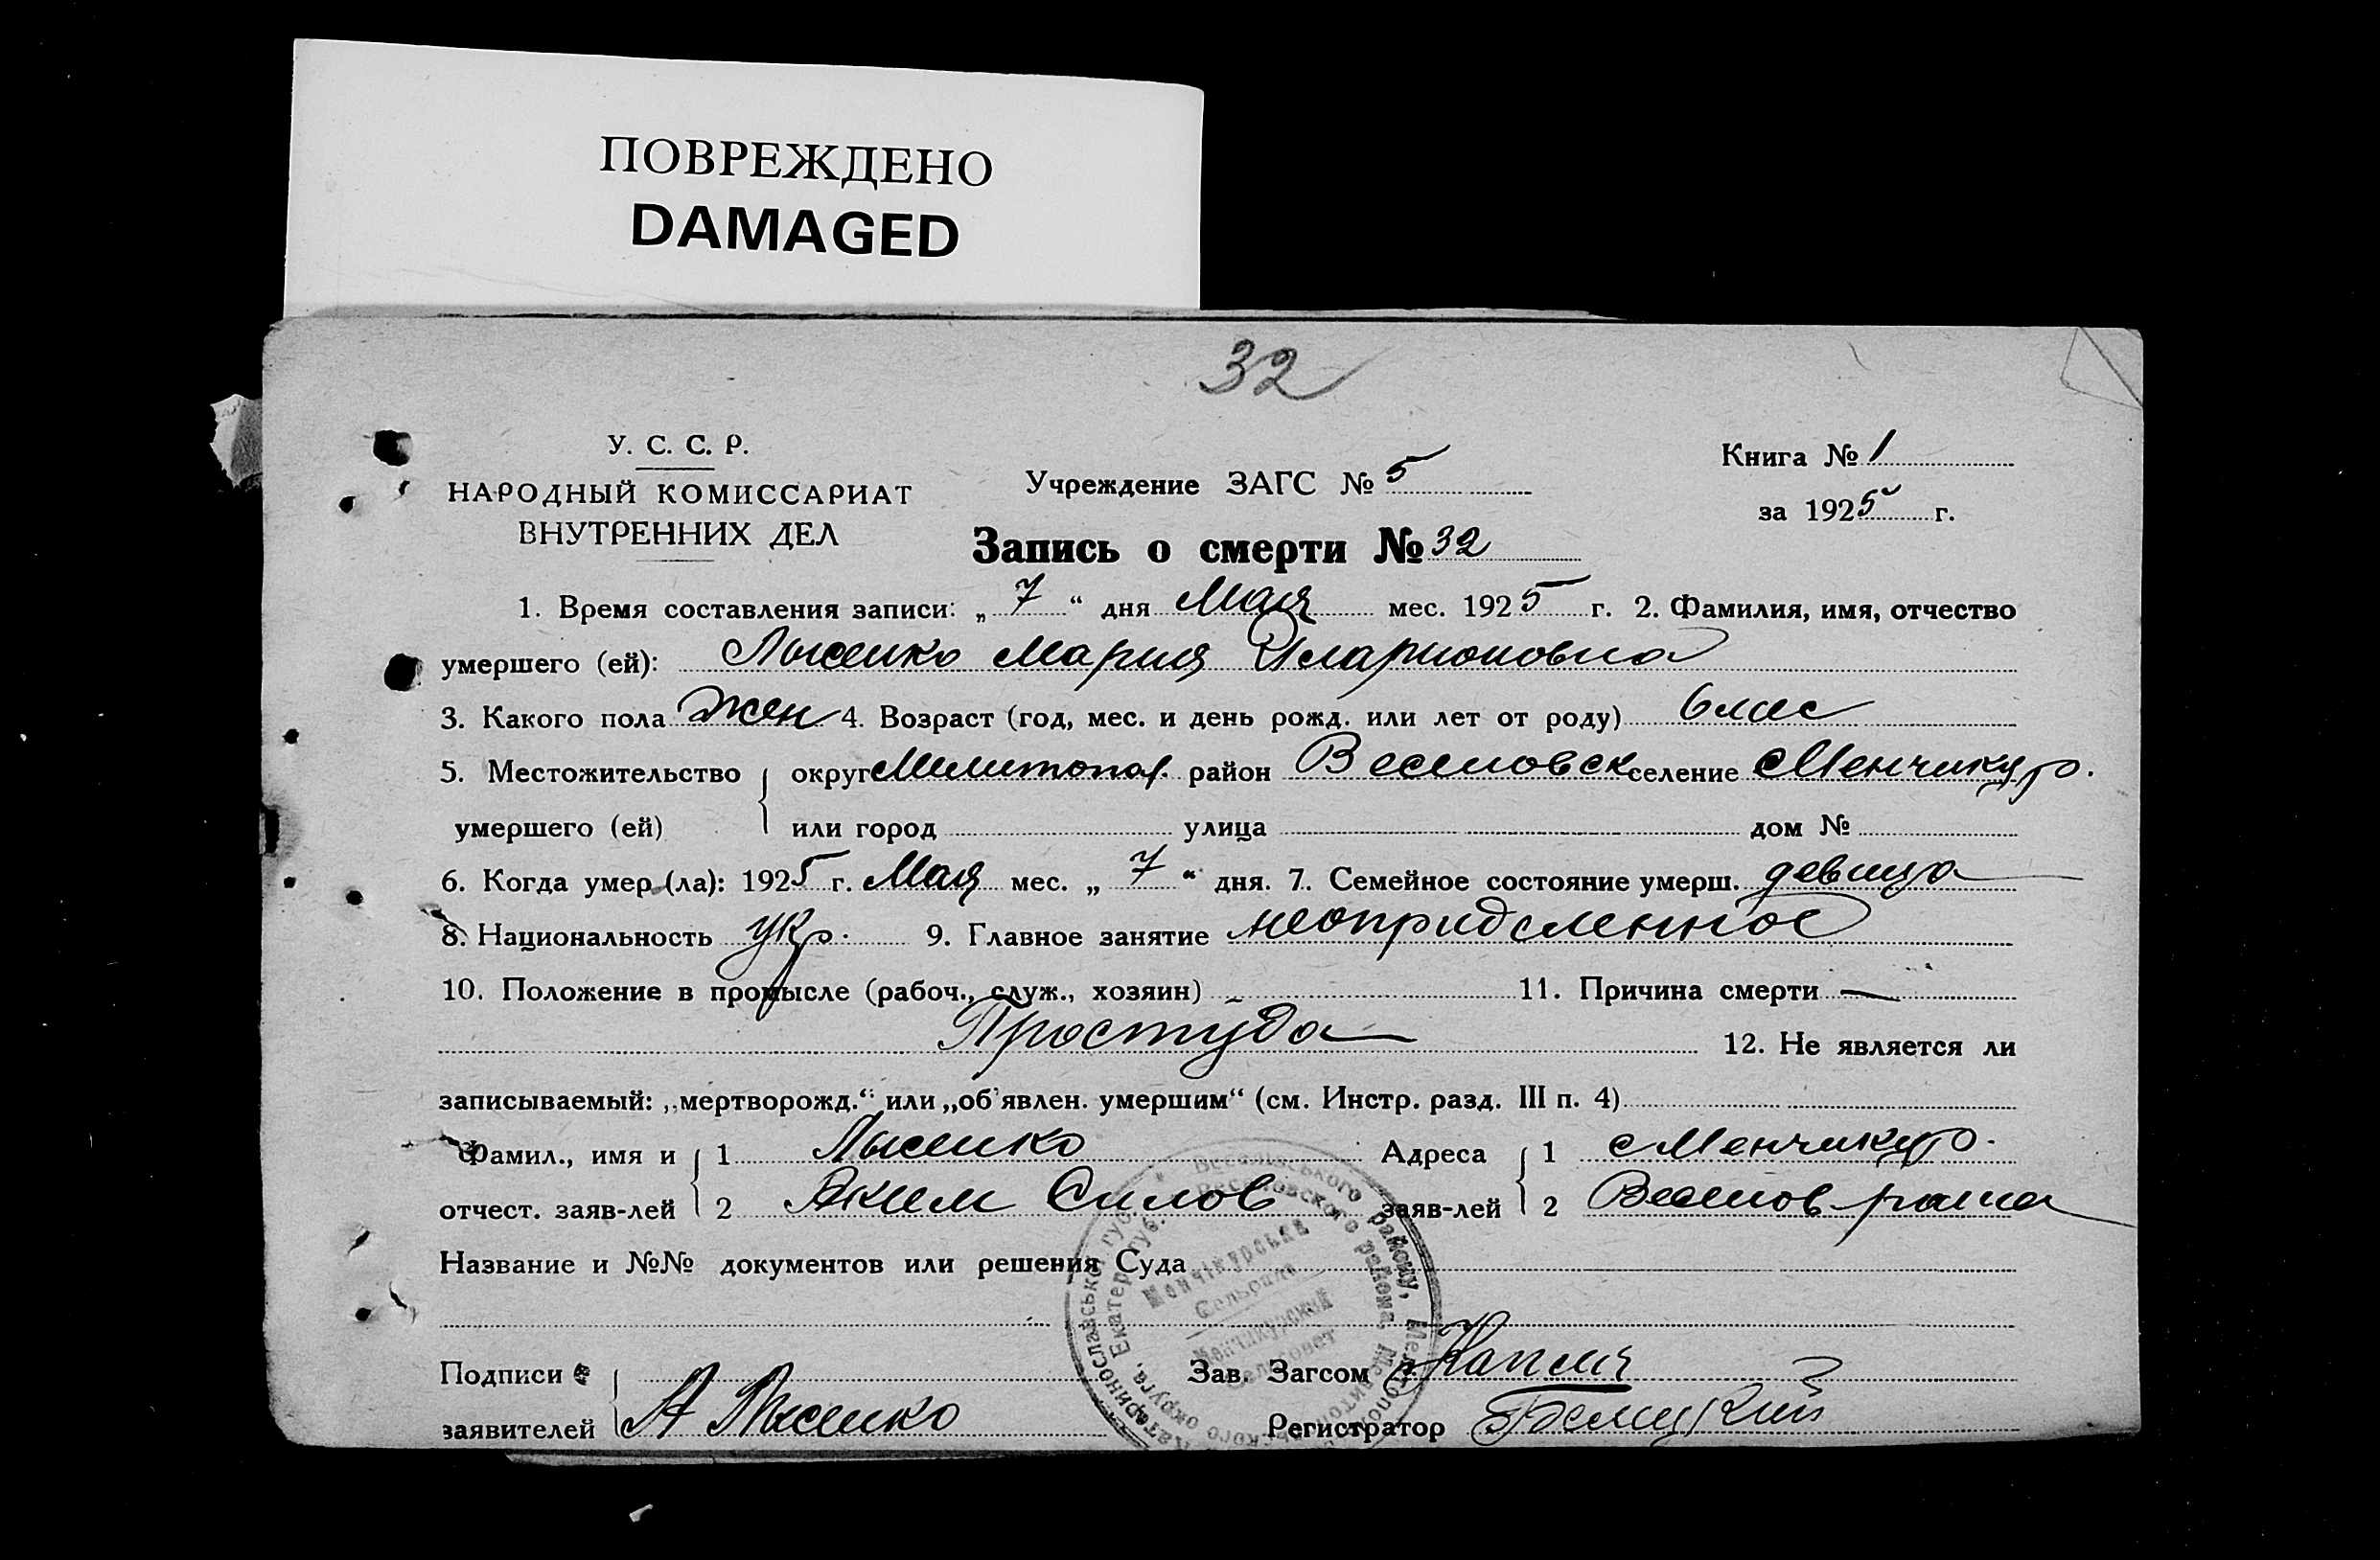 ПОВРЕЖДЕНО
DAMAGED
32
У. С. С. Р.
НАРОДНЫЙ КОМИССАРИАТ
ВНУТРЕННИХ ДЕЛ
Учреждение ЗАГС № 5
Книга № 1
за 1925 г.
Запись о смерти № 32
1. Время составления записи: „ 7 “ дня Мая мес. 1925 г. 2. Фамилия, имя, отчество
умершего (ей): Лысенко Мария Иларионовна
3. Какого пола жен 4. Возраст (год, мес. и день рожд. или лет от роду) 6 мес
5. Местожительство округ Мелитопол. район Веселовск селение Менчикур.
умершего (ей) или город улица дом №
6. Когда умер (ла): 1925 г. Мая мес. „ 7 “ дня. 7. Семейное состояние умерш. девица
8. Национальность укр. 9. Главное занятие неоприделенное
10. Положение в промысле (рабоч., служ., хозяин) 11. Причина смерти —
Простуда 12. Не является ли
записываемый: „мертворожд.“ или „об'явлен. умершим“ (см. Инстр. разд. III п. 4)
Фамил., имя и 1 Лысенко Адреса 1 с Менчикур.
отчест. заяв-лей 2 Аким Силов заяв-лей 2 Веселов района
Название и №№ документов или решения Суда
Менчікурська
Сельрада
Менчикурский
Сельсовет
Подписи Зав. Загсом Капля
заявителей А Лысенко Регистратор Белицкий